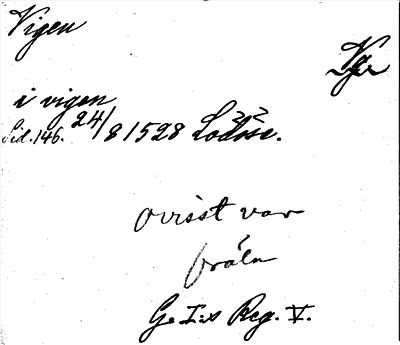 Vigen
Vg.
i vigen
Sid. 146. 24/8 1528 Lödöse.
ovisst var
ifråln
G. I:s Reg. V.